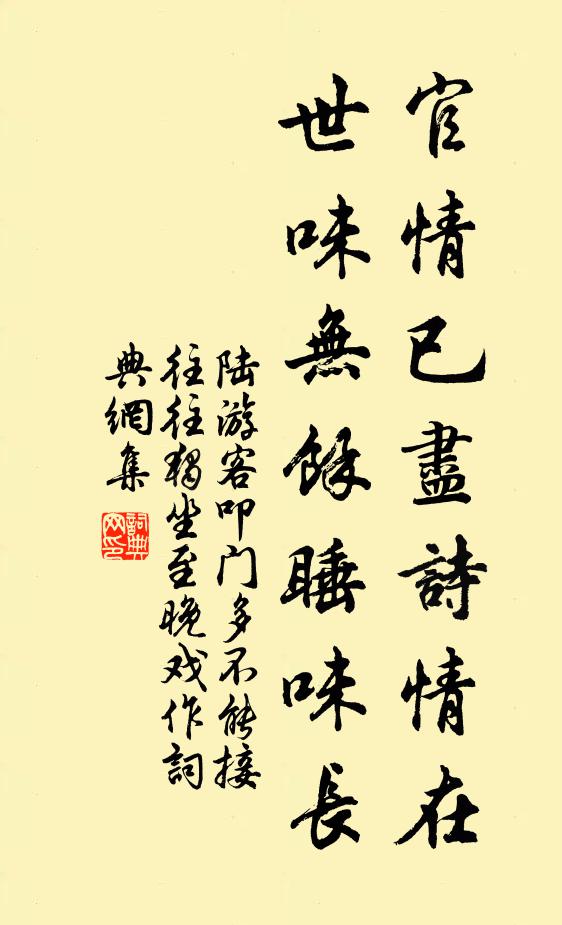 官情已盡詩情在
世味無餘睡味長
陆游客叩门多不能接
往往独坐至晚戏作詞
典網集
詞典
网印